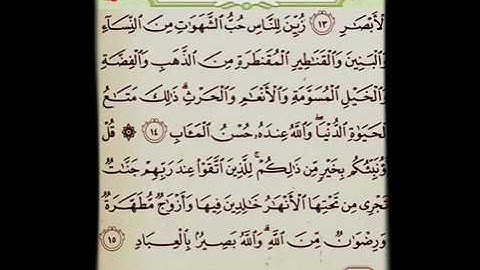 لْأَبْصَٰرِ ١٣ زُيِّنَ لِلنَّاسِ حُبُّ ٱلشَّهَوَٰتِ مِنَ ٱلنِّسَآءِ
وَٱلْبَنِينَ وَٱلْقَنَٰطِيرِ ٱلْمُقَنطَرَةِ مِنَ ٱلذَّهَبِ وَٱلْفِضَّةِ
وَٱلْخَيْلِ ٱلْمُسَوَّمَةِ وَٱلْأَنْعَٰمِ وَٱلْحَرْثِ ۗ ذَٰلِكَ مَتَٰعُ
ٱلْحَيَوٰةِ ٱلدُّنْيَا ۖ وَٱللَّهُ عِندَهُۥ حُسْنُ ٱلْمَـَٔابِ ١٤ ۞ قُلْ
أَؤُنَبِّئُكُم بِخَيْرٍ مِّن ذَٰلِكُمْ ۚ لِلَّذِينَ ٱتَّقَوْا۟ عِندَ رَبِّهِمْ جَنَّٰتٌ
تَجْرِى مِن تَحْتِهَا ٱلْأَنْهَٰرُ خَٰلِدِينَ فِيهَا وَأَزْوَٰجٌ مُّطَهَّرَةٌ
وَرِضْوَٰنٌ مِّنَ ٱللَّهِ ۗ وَٱللَّهُ بَصِيرٌۢ بِٱلْعِبَادِ ١٥